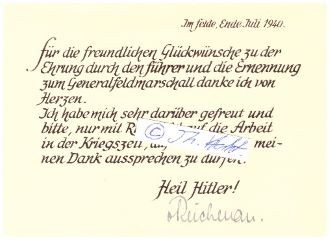 Im Felde, Ende Juli 1940.
für die freundlichen Glückwünsche zu der
Ehrung durch den führer und die Ernennung
zum Generalfeldmarschall danke ich von
Herzen.
Ich habe mich sehr darüber gefreut und
bitte, nur mit auf die Arbeit
in der Kriegszeit, mei-
nen Dank aussprechen zu dürfen.
Heil Hitler!
vReichenau.